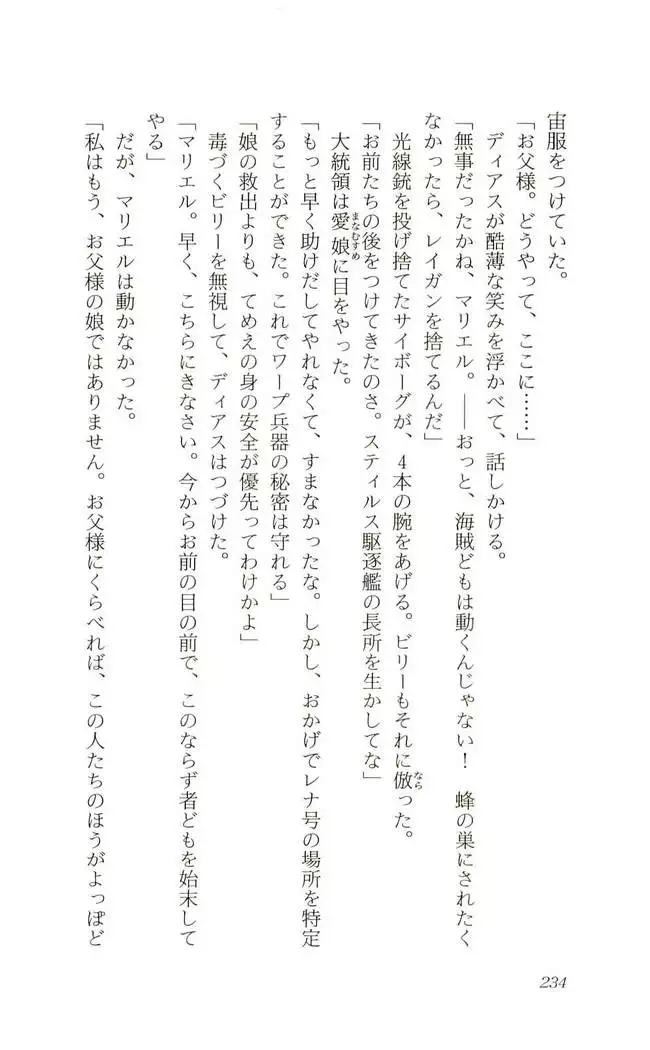 宙服をつけていた。
「お父様。どうやって、ここに……」
ディアスが酷薄な笑みを浮かべて、話しかける。
「無事だったかね、マリエル。――おっと、海賊どもは動くんじゃない！　蜂の巣にされたく
なかったら、レイガンを捨てるんだ」
光線銃を投げ捨てたサイボーグが、4本の腕をあげる。ビリーもそれに倣った。
「お前たちの後をつけてきたのさ。スティルス駆逐艦の長所を生かしてな」
大統領は愛娘に目をやった。
「もっと早く助けだしてやれなくて、すまなかったな。しかし、おかげでレナ号の場所を特定
することができた。これでワープ兵器の秘密は守れる」
「娘の救出よりも、てめえの身の安全が優先ってわけかよ」
毒づくビリーを無視して、ディアスはつづけた。
「マリエル。早く、こちらにきなさい。今からお前の目の前で、このならず者どもを始末して
やる」
だが、マリエルは動かなかった。
「私はもう、お父様の娘ではありません。お父様にくらべれば、この人たちのほうがよっぽど
234